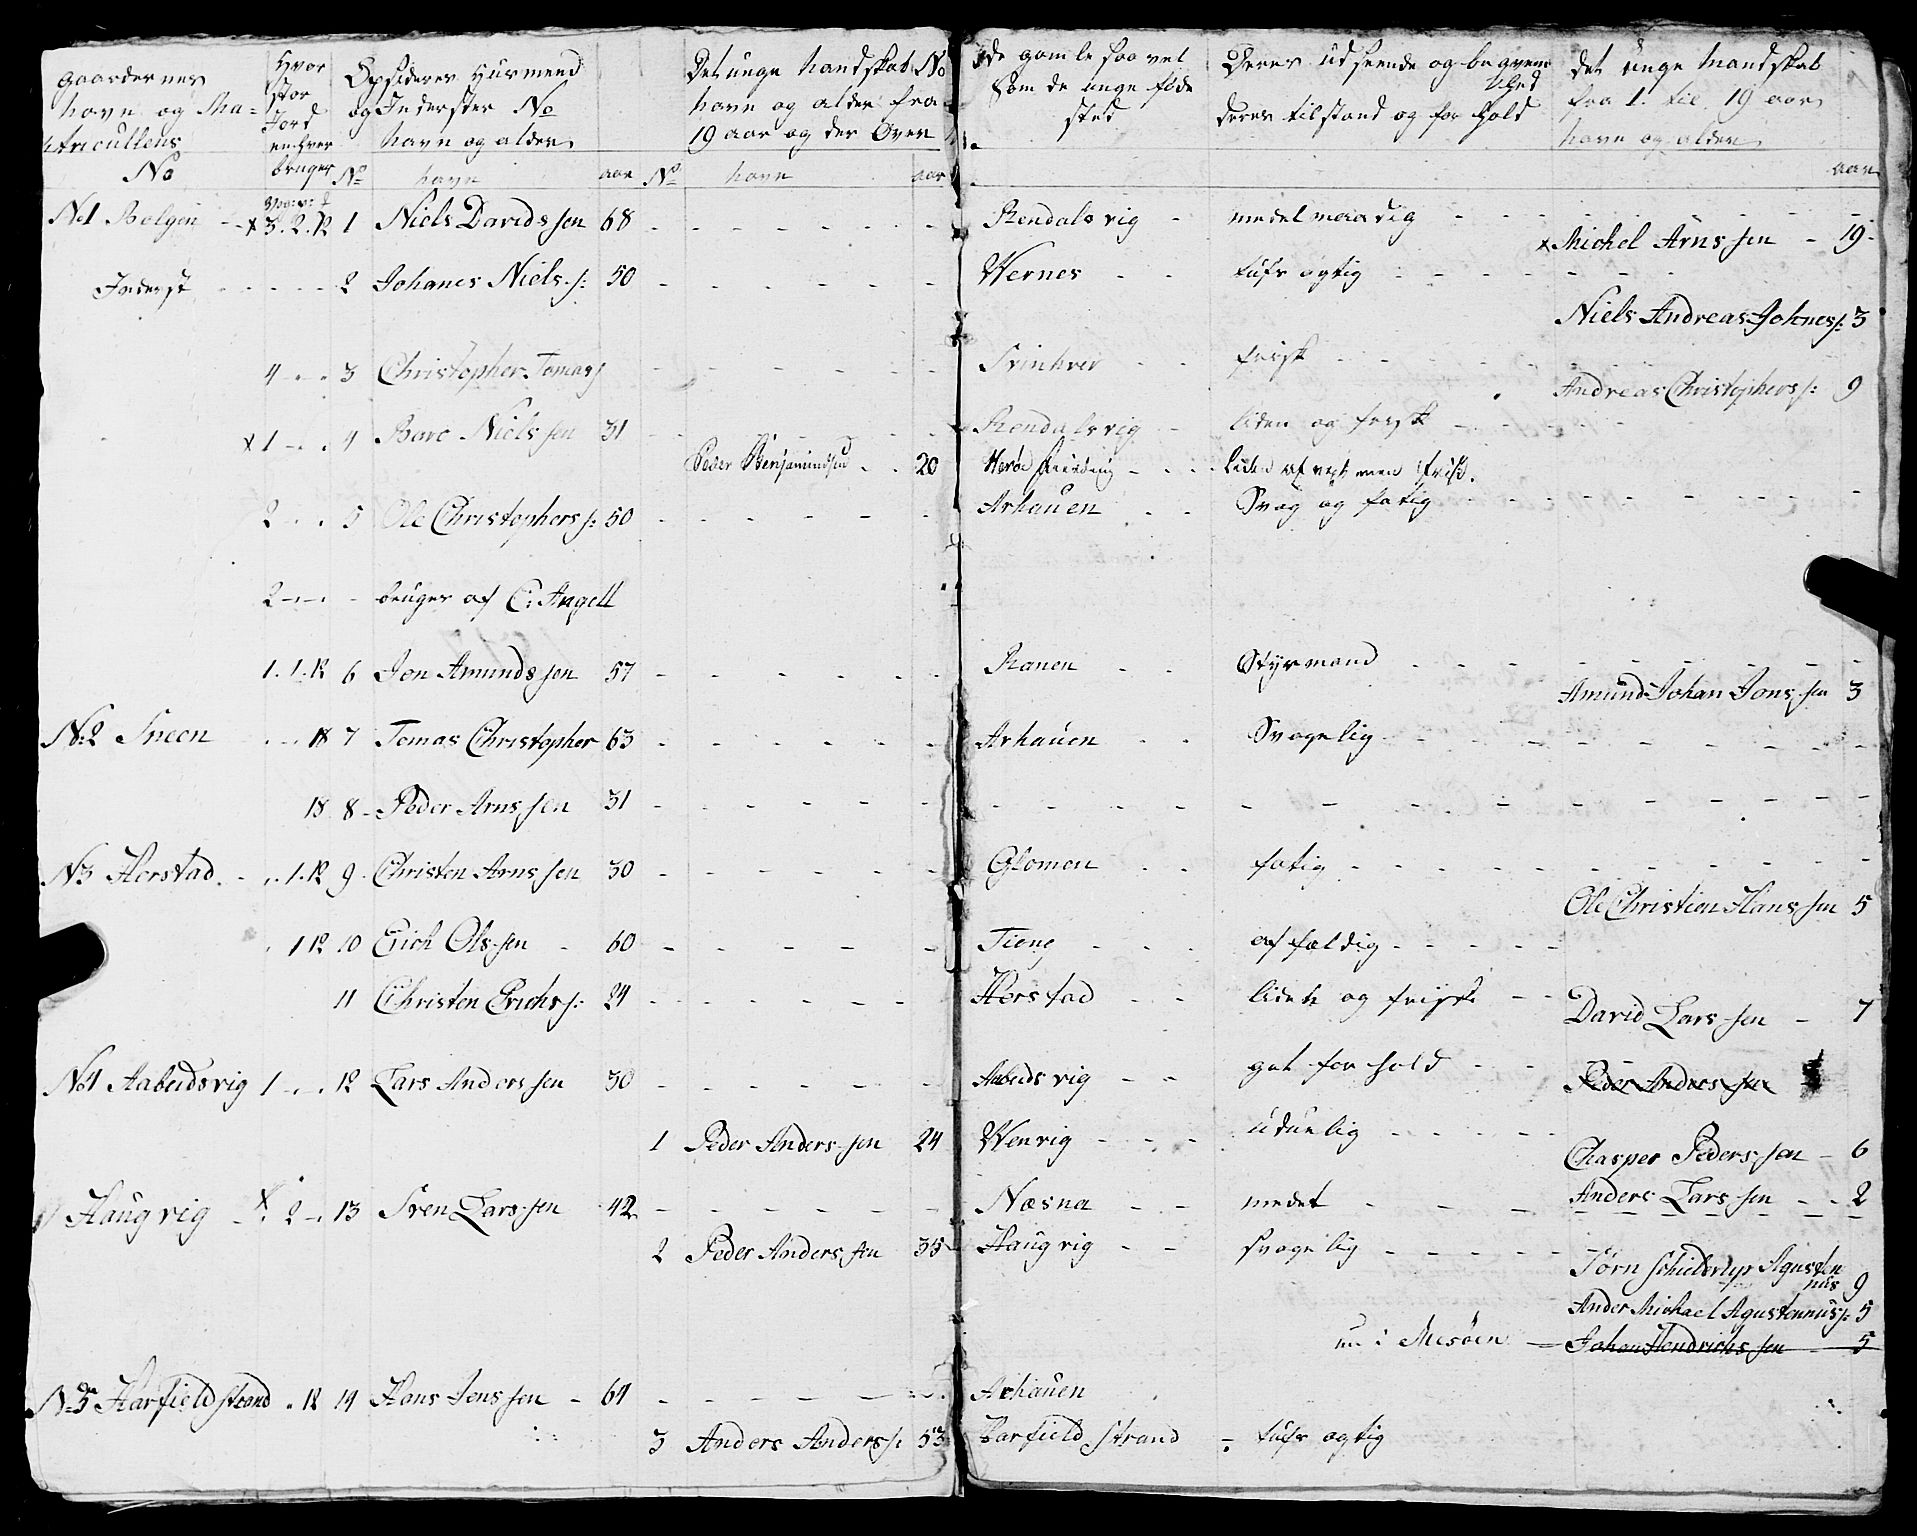 Gaardernes
Navn og Ma=
triculens
No
Hvor
stor
Jord
enhver
bruger
Opsidder Husmend
og Inderster No
Navn og alder
No Navn aar
Det unge Mandskab No
Navn og alder fra
19 aar og der Over
No Navn aar
de gamle saa vel
Som de unge føde
sted
Deres udseende og beqvem
hed
deres tilstand og for hold
det unge Mandskab
fra 1. til 19 aar
Navn og alder
aar
No1 Bolgen x 3. 2. 12 1 Niels Davidssen 68 Rendalsvig medelmaadig
x Michel Arnssen 19
Inderst 2 Johanes Niels s: 50 Wernes tufs agtig
Niels Andreas Johnes s: 3
4 3 Christopher Tomas s frisk
Andreas Christophers s: 9
x 1 4 Baro Nielssen 31 Rendalsvig liden og frisk
Peder Benjamindsen 20 Herøe liden af vext men frisk.
2 5 Ole Christophers s: 50 Arhauen Svag og fatig
2 bruges af C: Angell
1. 1. 12 6 Jon Amundssen 57 Ranen Styrmand
Amund Johan Jonssen 3
No2 Sneen 18 7 Tomas Christopher 63 Arhauen Svagelig
18 8 Peder Arnssen 31
N3 Horstad 1. 12 9 Christen Arnssen 30 Glomen fatig
Ole Christian Hanssen 5
1 12 10 Erich Olssen 60 Tieng affældig
11 Christen Erichs s: 24 Horstad lidet og frisk
David Larssen 7
No4 Aabudsvig 1 12 Lars Anderssen 30 Aabudsvig got for hold
Peder Anderssen
1 Peder Anderssen 24 Wenvig uduelig
Chasper Pederssen 6
Haugvig x 2 13 Sven Larssen 42 Næsna medet
Anders Larssen 2
2 Peder Anderssen 35 Haugvig svagelig
Jørn Schielderup Agusten
nus 9
Ander Michael Agustennus s: 5
nu i Mesøen Johan Hendrichssen 5
No5 Harfieldstrand 12 14 Hans Jenssen 64 Arhauen
3 Anders Anders s: 53 Harfieldstrand tufs agtig